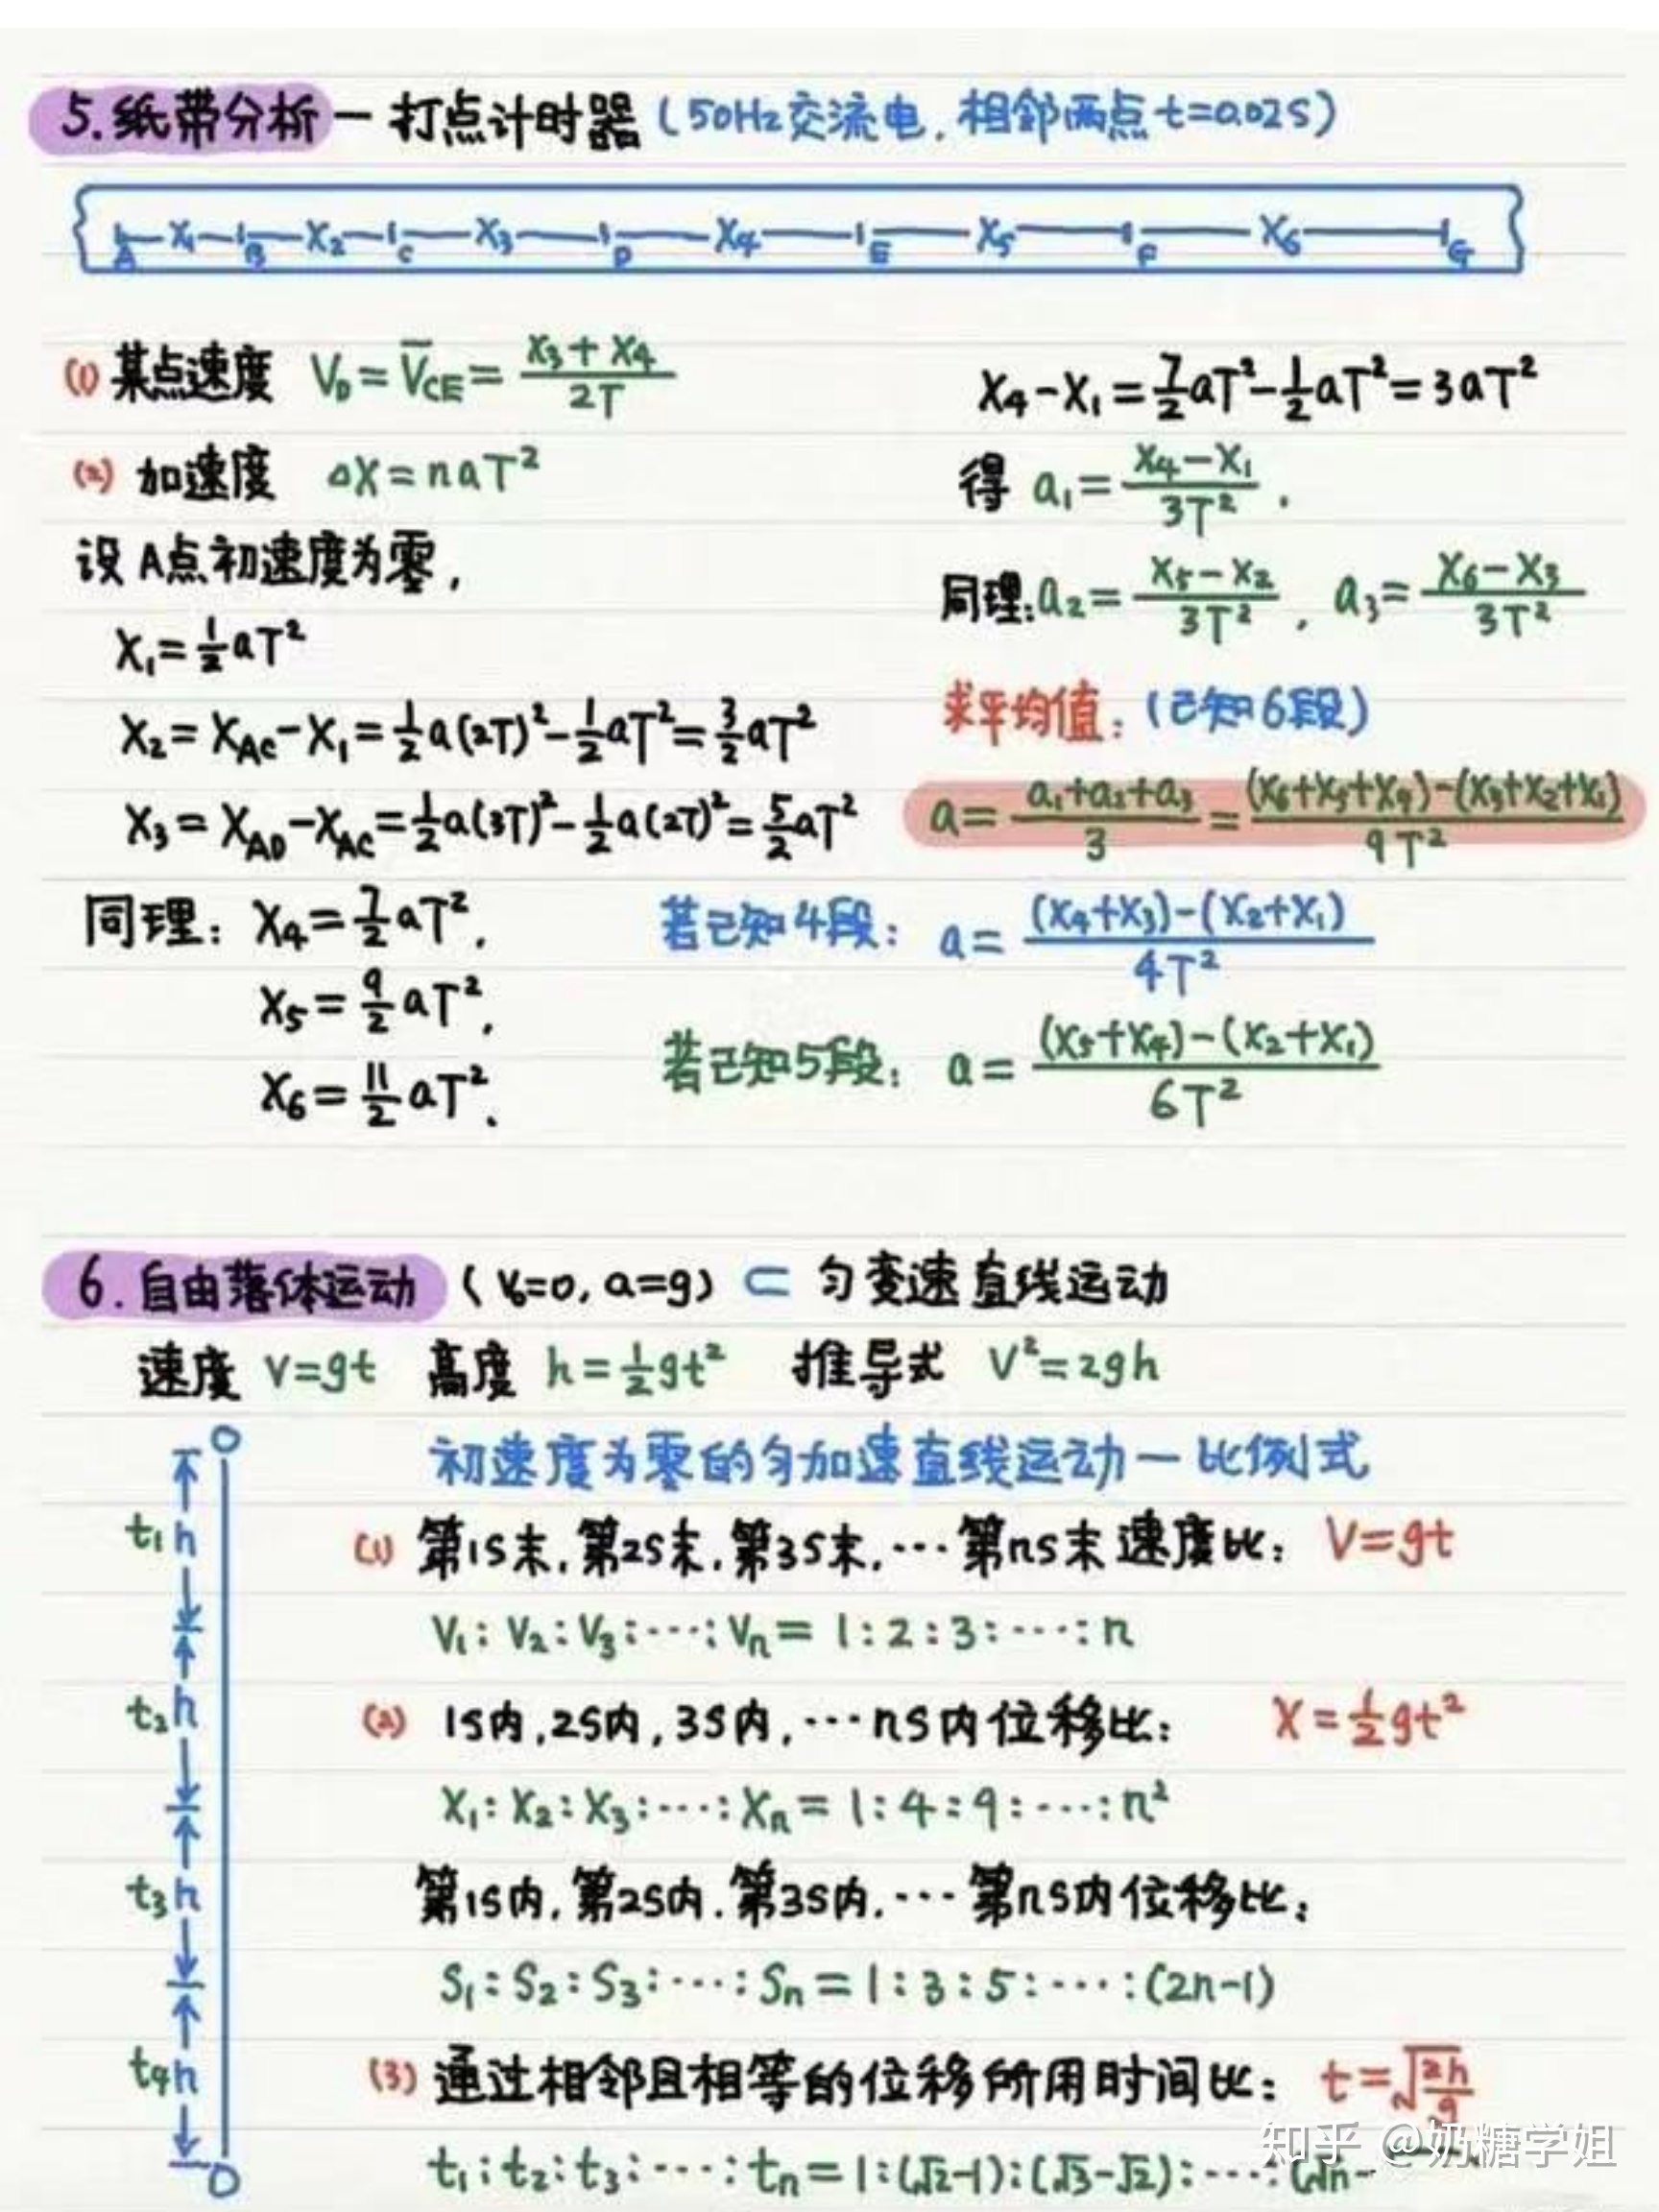 5.纸带分析一打点计时器(50Hz交流电,相邻两点t=0.02S)
A X₁ B X₂ C X₃ D X₄ E X₅ F X₆ G
(1) 某点速度 V_D=V̅_CE=(X₃+X₄)/2T
(2) 加速度 △X=naT²
设A点初速度为零,
X₁=½aT²
X₂=X_AC-X₁=½a(2T)²-½aT²=3/2aT²
X₃=X_AD-X_AC=½a(3T)²-½a(2T)²=5/2aT²
同理:X₄=7/2aT².
X₅=9/2aT².
X₆=11/2aT².
X₄-X₁=7/2aT²-½aT²=3aT²
得 a₁=(X₄-X₁)/3T².
同理:a₂=(X₅-X₂)/3T², a₃=(X₆-X₃)/3T²
求平均值:(已知6段)
a=(a₁+a₂+a₃)/3=((X₆+X₅+X₄)-(X₃+X₂+X₁))/9T²
若已知4段: a=((X₄+X₃)-(X₂+X₁))/4T²
若已知5段: a=((X₅+X₄)-(X₂+X₁))/6T²
6.自由落体运动(V₀=0, a=g) ⊂ 匀变速直线运动
速度 V=gt 高度 h=½gt² 推导式 V²=2gh
初速度为零的匀加速直线运动一比例式
t₁ h
t₂ h
t₃ h
t₄ h
(1) 第1S末,第2S末,第3S末,…第nS末速度比: V=gt
V₁:V₂:V₃:…:Vn=1:2:3:…:n
(2) 1S内,2S内,3S内,…nS内位移比: X=½gt²
X₁:X₂:X₃:…:Xn=1:4:9:…:n²
第1S内,第2S内.第3S内.…第nS内位移比:
S₁:S₂:S₃:…:Sn=1:3:5:…:(2n-1)
(3) 通过相邻且相等的位移所用时间比: t=√(2h/g)
t₁:t₂:t₃:…:tn=1:(√2-1):(√3-√2):…:(√n-
知乎 @奶糖学姐